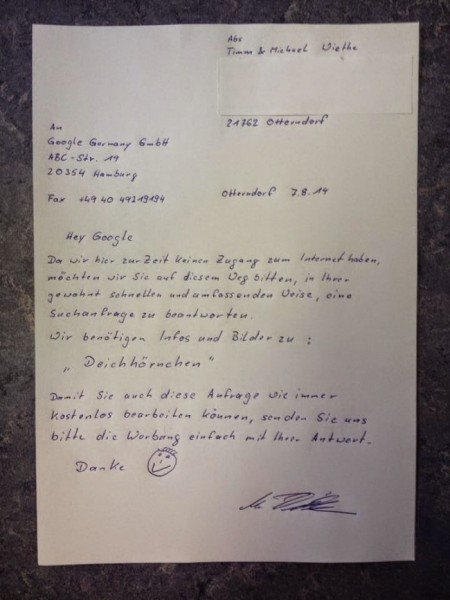 Abs
Timm & Michael Wiethe
21762 Otterndorf
An
Google Germany GmbH
ABC-Str. 19
20354 Hamburg
Fax +49 40 49219194
Otterndorf 7.8.14
Hey Google
Da wir hier zur Zeit keinen Zugang zum Internet haben,
möchten wir Sie auf diesem Weg bitten, in Ihrer
gewohnt schnellen und umfassenden Weise, eine
Suchanfrage zu beantworten.
Wir benötigen Infos und Bilder zu :
„ Deichhörnchen "
Damit Sie auch diese Anfrage wie immer
kostenlos bearbeiten können, senden Sie uns
bitte die Werbung einfach mit Ihrer Antwort.
Danke